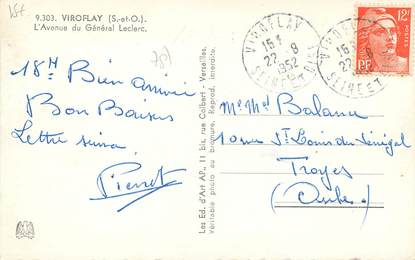 9.303. VIROFLAY (S.-et-O.).
L'Avenue du Général Leclerc.
18H Bien arrivée
Bon Baisers
Lettre suivra
Pierret
Les Ed. d'Art AP., 11 bis, rue Colbert - Versailles.
Véritable photo au bromure. Reprod. interdite.
VIROFLAY
15H
22 8
1952
SEINE ET OISE
VIROFLAY
15H
22 8
SEINE ET
12F
POSTES
RF
M. Md Balana
10 rue St Louis du Sénégal
Troyes
(Aube)